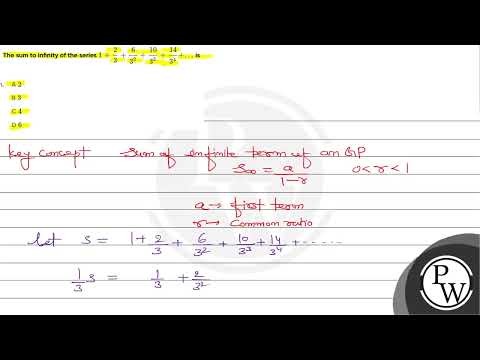 The sum to infinity of the series 1 + 2/3 + 6/3² + 10/3³ + 14/3⁴ + ... is
A 2
B 3
C 4
D 6
Key concept Sum of infinite term of an GP
S∞ = a/1-r 0<r<1
a → first term
r → Common ratio
let S = 1 + 2/3 + 6/3² + 10/3³ + 14/3⁴ + ......
1/3 S = 1/3 + 2/3²
P
W